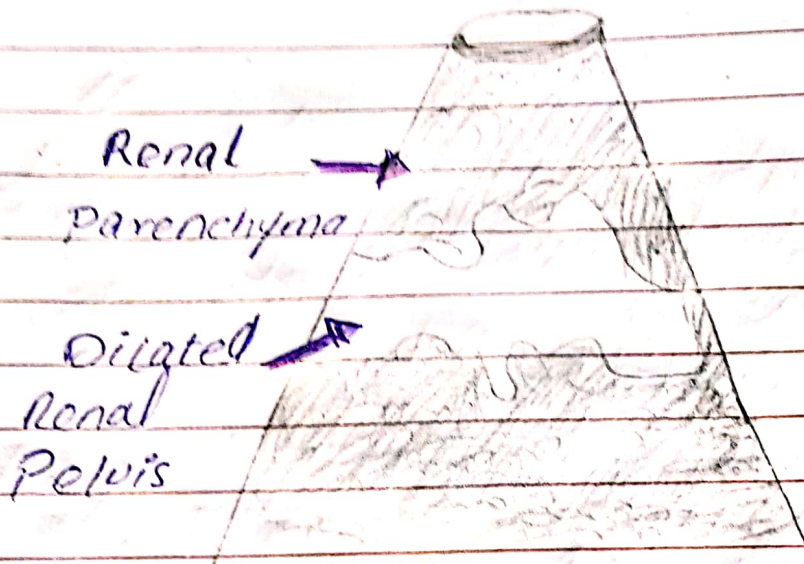 Renal
Parenchyma
Dilated
Renal
Pelvis